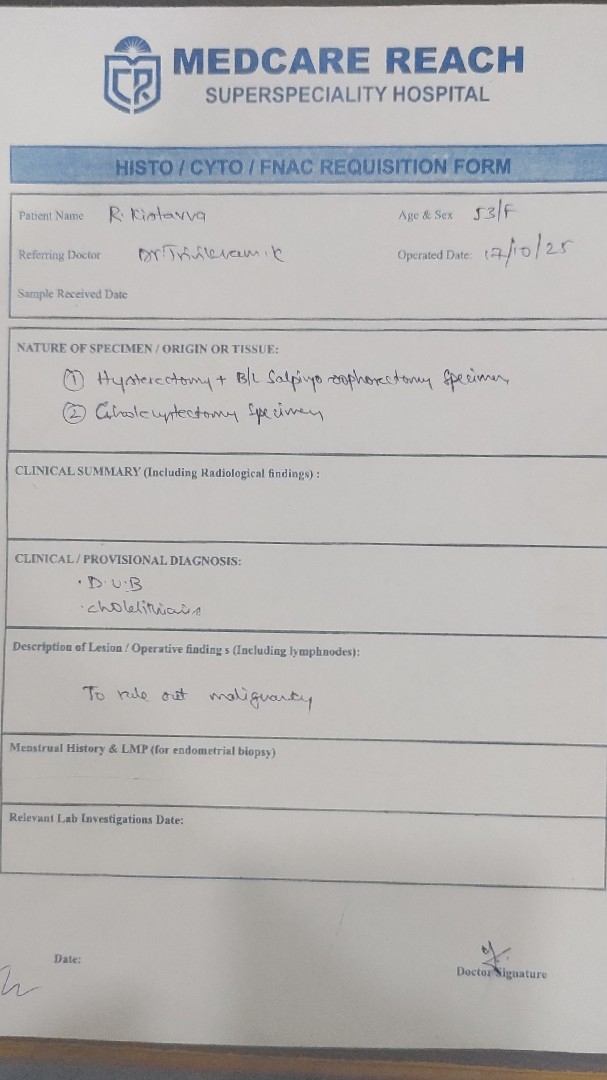 MEDCARE REACH
SUPERSPECIALITY HOSPITAL
HISTO / CYTO / FNAC REQUISITION FORM
Patient Name R. Kistavva Age & Sex 53/F
Referring Doctor Operated Date: 17/10/25
Sample Received Date
NATURE OF SPECIMEN / ORIGIN OR TISSUE:
① Hysterectomy + B/L Salpingo oophorectomy Specimen
② Cholecystectomy Specimen
CLINICAL SUMMARY (Including Radiological findings) :
CLINICAL / PROVISIONAL DIAGNOSIS:
• D.U.B
• cholelithiasis
Description of Lesion / Operative finding s (Including lymphnodes):
To rule out malignancy
Menstrual History & LMP (for endometrial biopsy)
Relevant Lab Investigations Date:
Date:
Doctor Signature